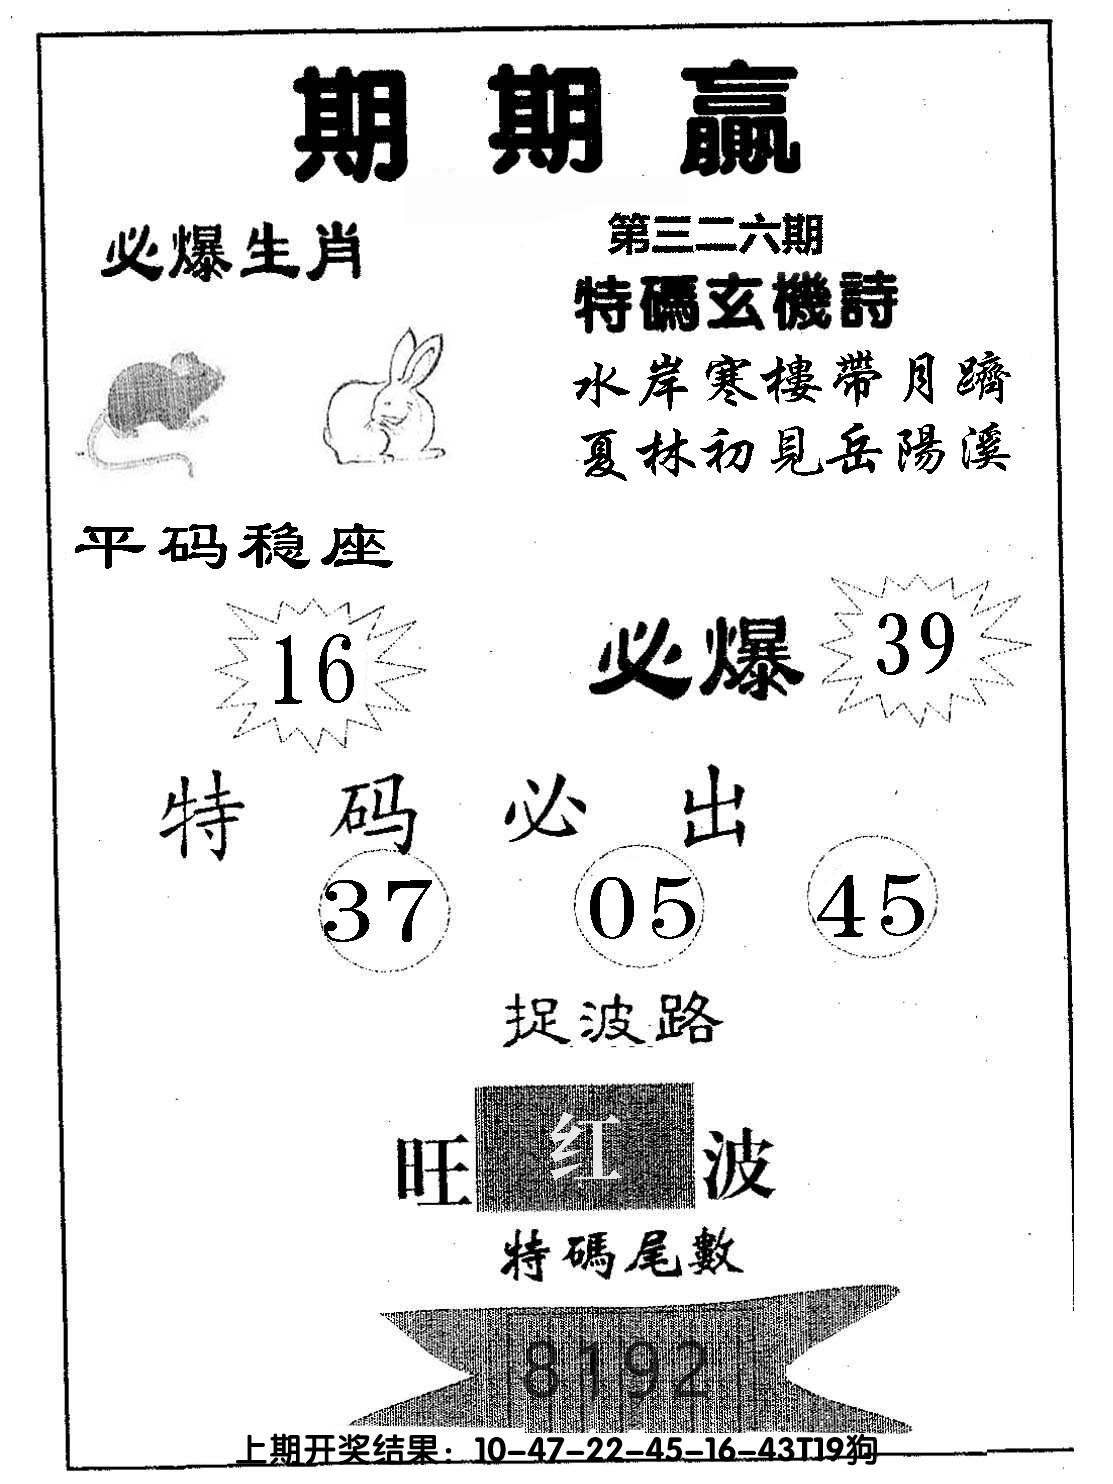 期期赢
必爆生肖
第三二六期
特碼玄機詩
水岸寒樓帶月躋
夏林初見岳陽溪
平码稳座
16
必爆 39
特码必出
37 05 45
捉波路
旺 红 波
特碼尾數
8192
上期开奖结果：10-47-22-45-16-43T19狗